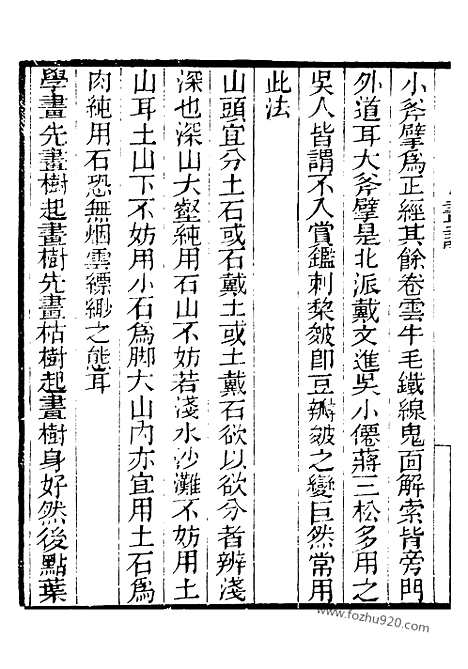 小斧擘為正經其餘卷雲牛毛鐵線鬼面解索皆旁門
外道耳大斧擘是北派戴文進吳小僊蔣三松多用之
吳人皆謂不入賞鑑刺棃皴卽豆瓣皴之變巨然常用
此法
山頭宜分土石或石戴土或土戴石欲以欲分者辨淺
深也深山大壑純用石山不妨若淺水沙灘不妨用土
山耳土山下不妨用小石為脚大山內亦宜用土石為
肉純用石恐無烟雲縹緲之態耳
學畫先畫樹起畫樹先畫枯樹起畫樹身好然後點葉
www.fozhu920.com